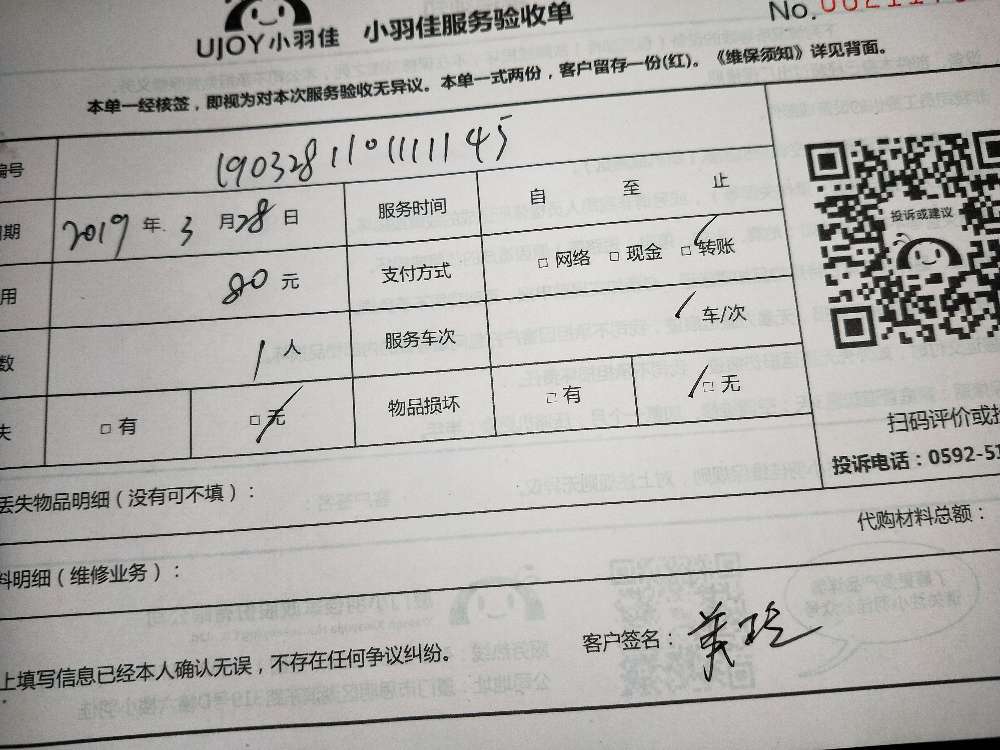 UJOY小羽佳 小羽佳服务验收单 No.
本单一经核签，即视为对本次服务验收无异议。本单一式两份，客户留存一份(红)。《维保须知》详见背面。
编号 190328110111145
日期 2019年3月28日 服务时间 自 至 止
用 80元 支付方式 □网络 □现金 □转账
数 1人 服务车次 1车/次
失 □有 □无 物品损坏 □有 □无
投诉或建议
扫码评价或投
投诉电话：0592-51
丢失物品明细（没有可不填）：
代购材料总额：
料明细（维修业务）：
上填写信息已经本人确认无误，不存在任何争议纠纷。 客户签名：